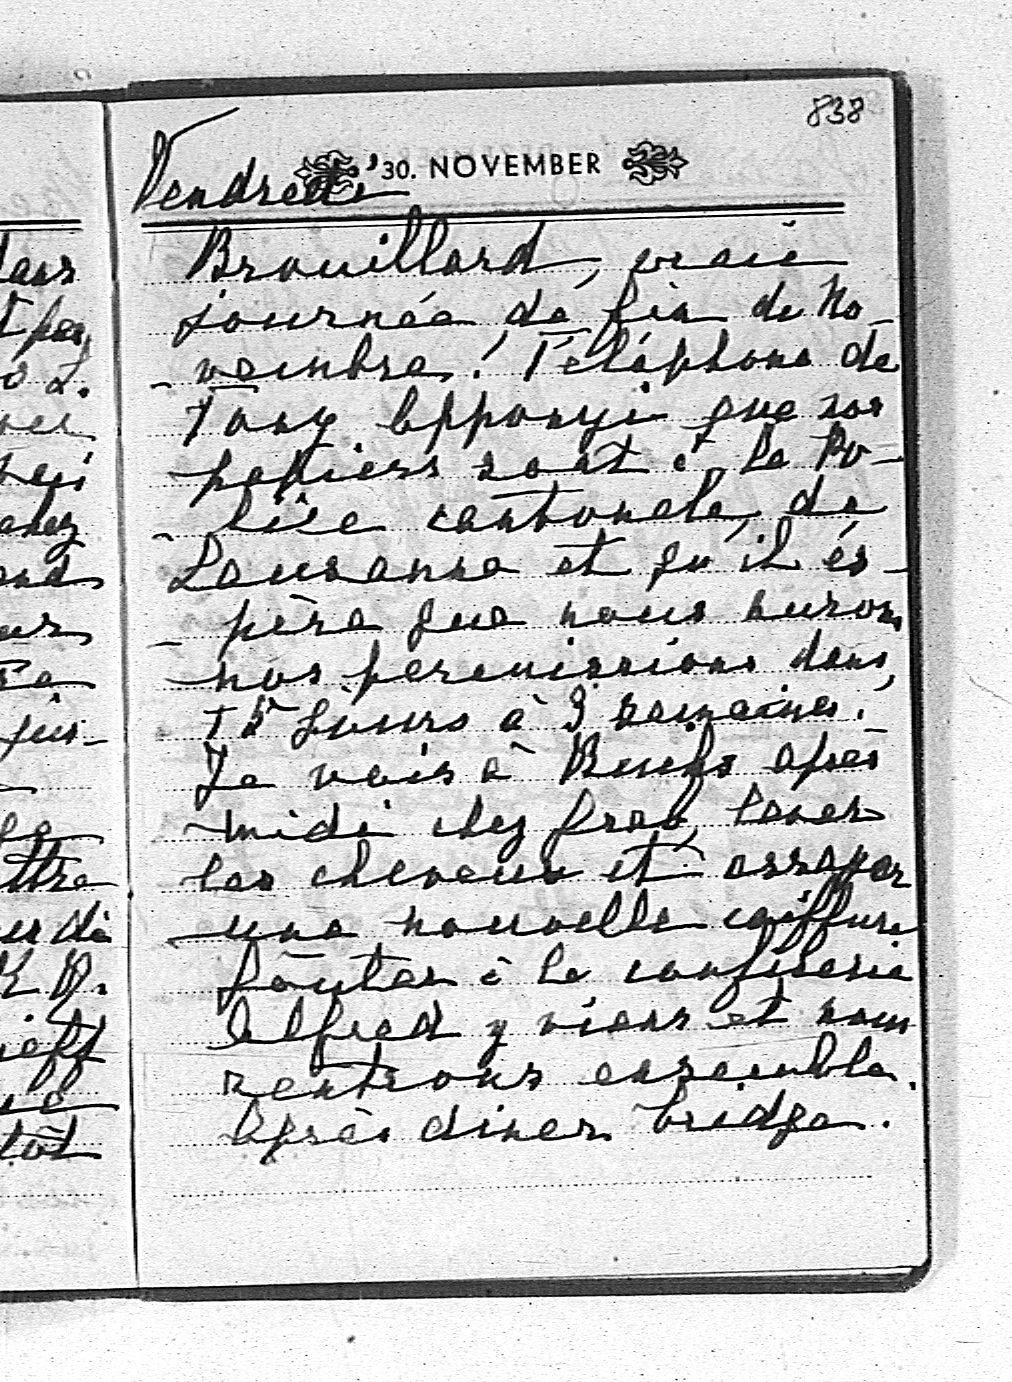 838
Vendredi
30. NOVEMBER
Brouillard, vraie
journée de fin de No-
vembre. Téléphone de
Tony Apponyi que nos
papiers sont à la Po-
lice cantonale de
Lausanne et qu'il es-
père que nous aurons
nos permissions dans
15 jours à 3 semaines.
Je vais à Buchs après
midi chez laver
les cheveux et essayer
une nouvelle coiffure
Goûter à la confiserie
Alfred y viens et nous
rentrons ensemble.
Après diner bridge.